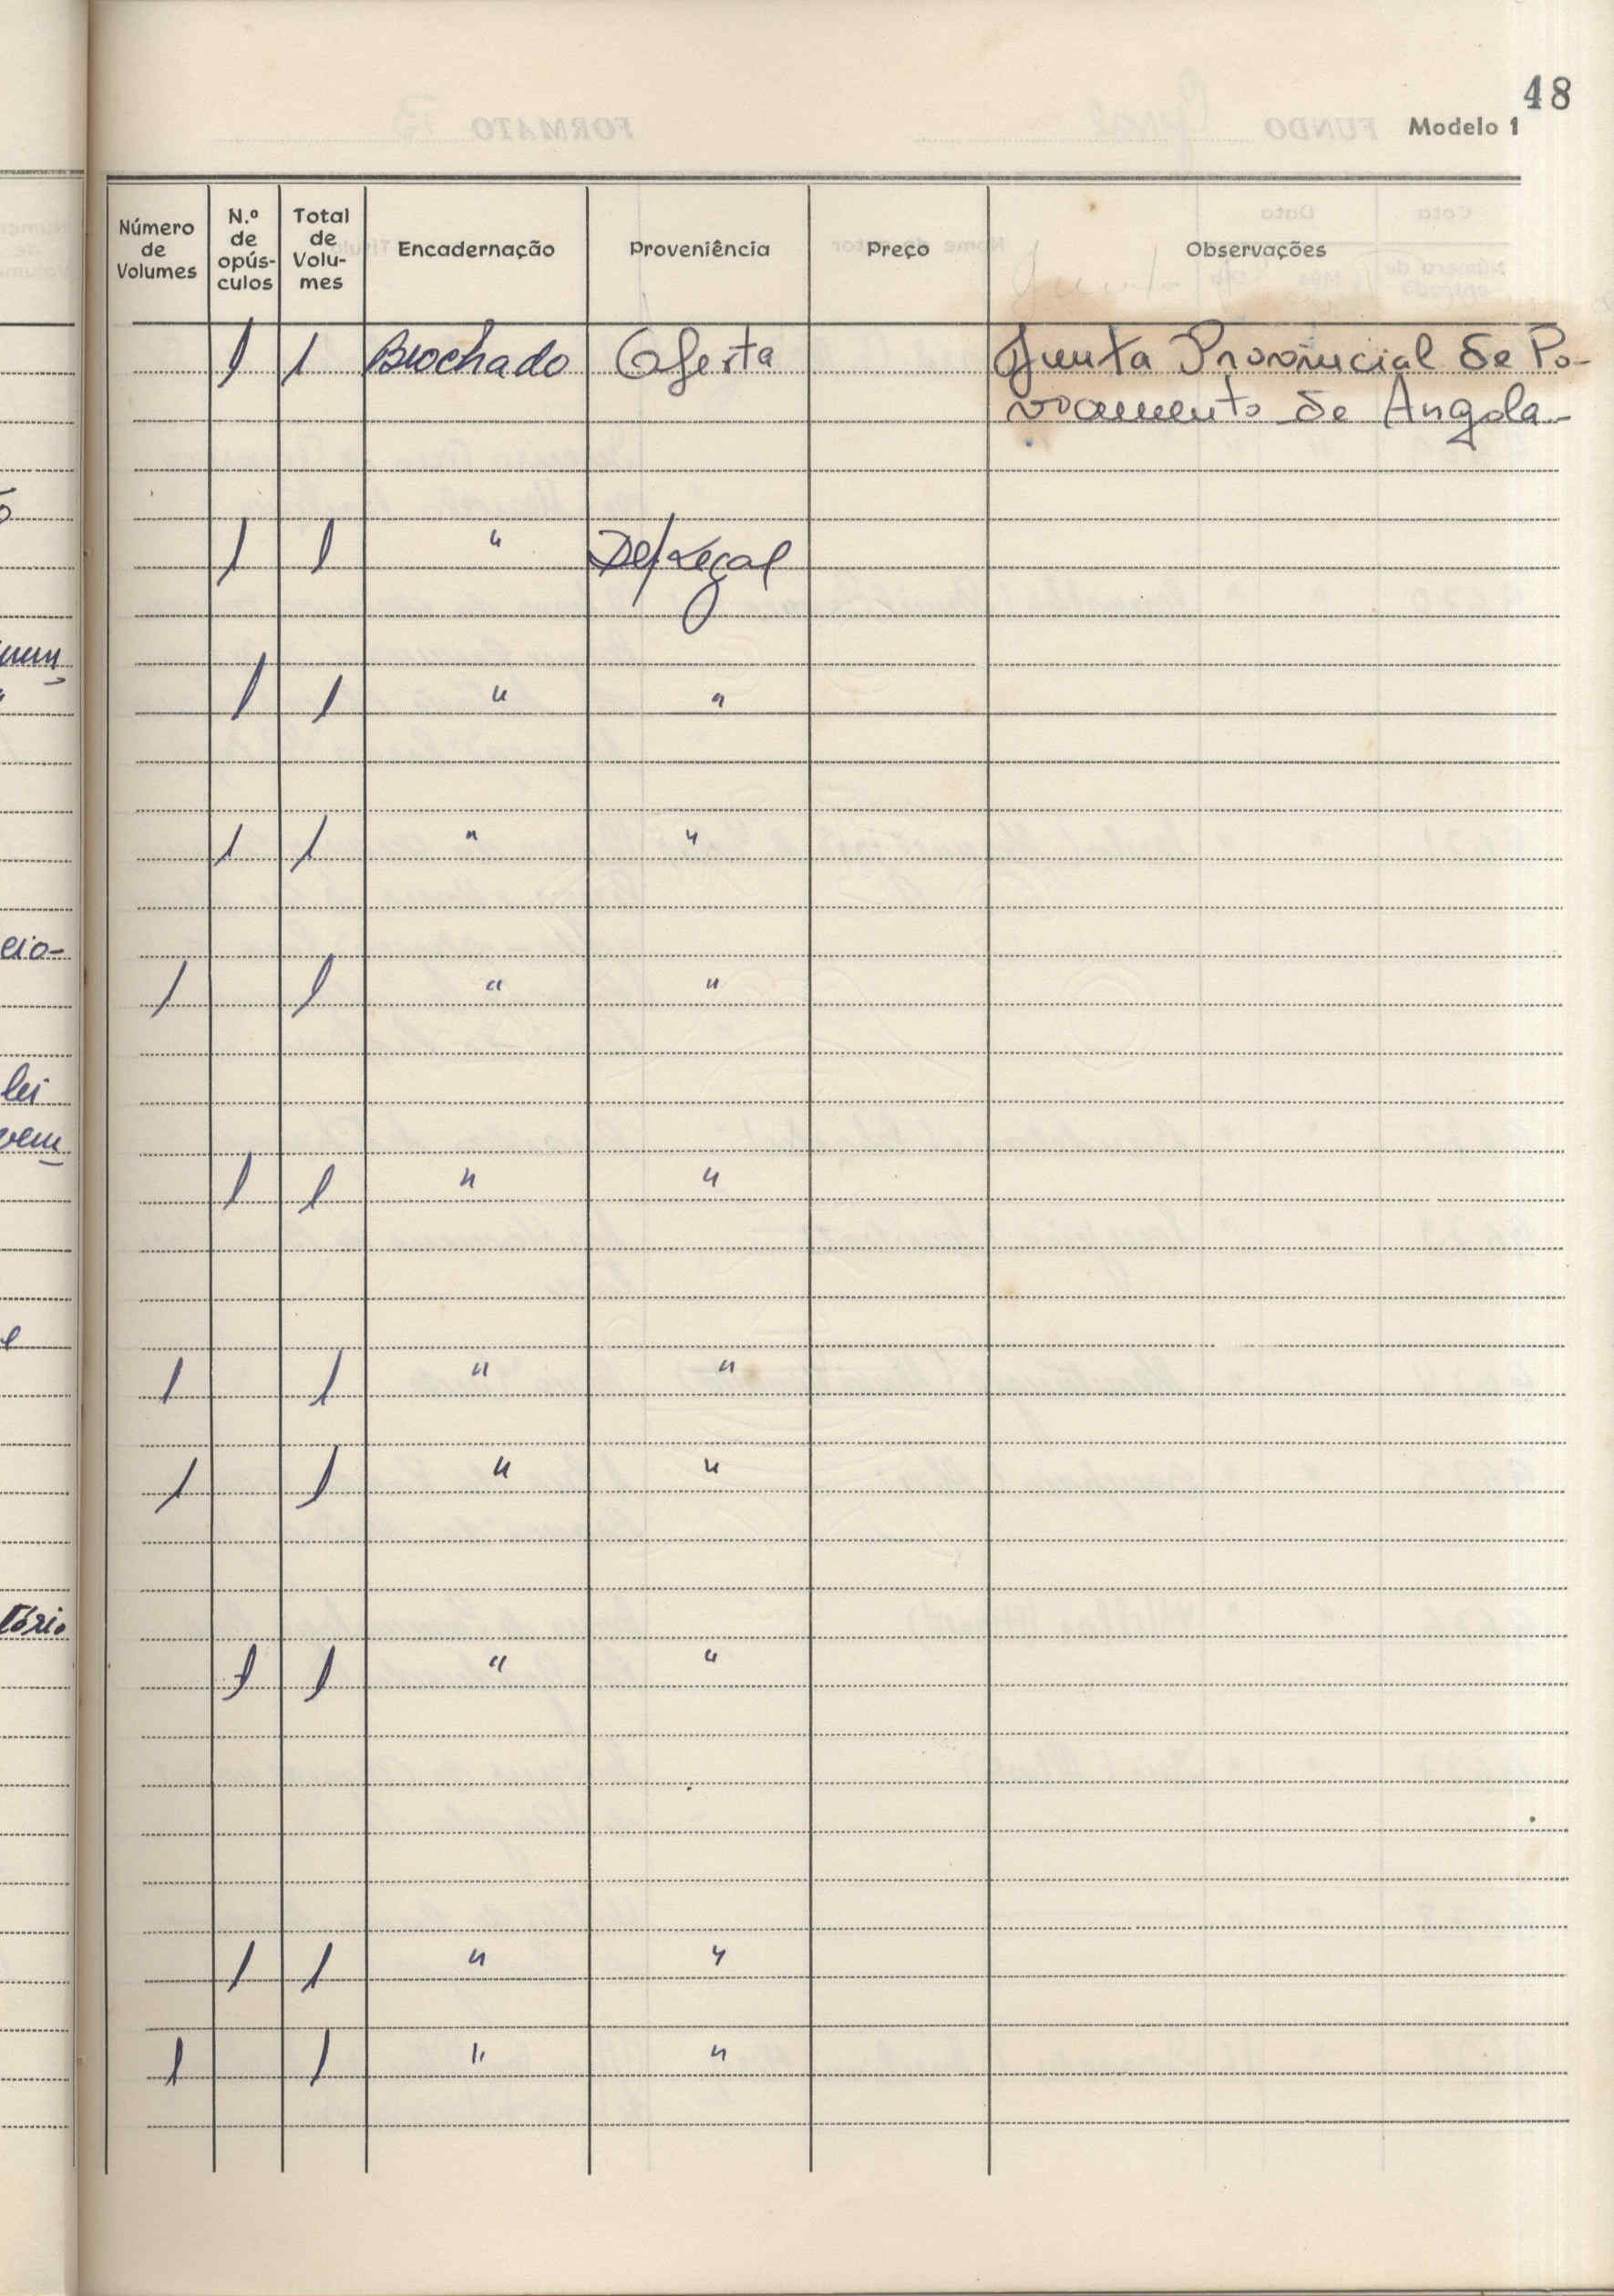 48
Modelo 1
Número de Volumes
N.º de opús-culos
Total de Volu-mes
Encadernação
Proveniência
Preço
Observações
1 1 Brochado Oferta Junta Provincial de Po-
voamento de Angola
1 1 " Dep/Legal
1 1 " "
1 1 " "
eio-
1 1 " "
lei
vem
1 1 " "
e
1 1 " "
1 1 " "
tório
1 1 " "
1 1 " "
1 1 " "